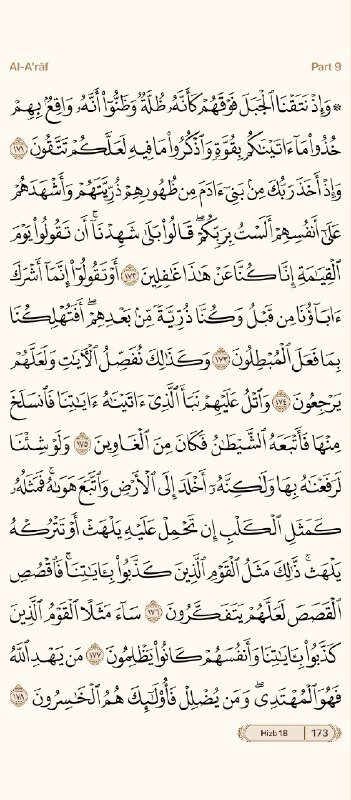 Al-A'rāf Part 9
۞ وَإِذۡ نَتَقۡنَا ٱلۡجَبَلَ فَوۡقَهُمۡ كَأَنَّهُۥ ظُلَّةٞ وَظَنُّوٓاْ أَنَّهُۥ وَاقِعُۢ بِهِمۡ
خُذُواْ مَآ ءَاتَيۡنَٰكُم بِقُوَّةٖ وَٱذۡكُرُواْ مَا فِيهِ لَعَلَّكُمۡ تَتَّقُونَ ١٧١
وَإِذۡ أَخَذَ رَبُّكَ مِنۢ بَنِيٓ ءَادَمَ مِن ظُهُورِهِمۡ ذُرِّيَّتَهُمۡ وَأَشۡهَدَهُمۡ
عَلَىٰٓ أَنفُسِهِمۡ أَلَسۡتُ بِرَبِّكُمۡۖ قَالُواْ بَلَىٰ شَهِدۡنَآۚ أَن تَقُولُواْ يَوۡمَ
ٱلۡقِيَٰمَةِ إِنَّا كُنَّا عَنۡ هَٰذَا غَٰفِلِينَ ١٧٢ أَوۡ تَقُولُوٓاْ إِنَّمَآ أَشۡرَكَ
ءَابَآؤُنَا مِن قَبۡلُ وَكُنَّا ذُرِّيَّةٗ مِّنۢ بَعۡدِهِمۡۖ أَفَتُهۡلِكُنَا
بِمَا فَعَلَ ٱلۡمُبۡطِلُونَ ١٧٣ وَكَذَٰلِكَ نُفَصِّلُ ٱلۡأٓيَٰتِ وَلَعَلَّهُمۡ
يَرۡجِعُونَ ١٧٤ وَٱتۡلُ عَلَيۡهِمۡ نَبَأَ ٱلَّذِيٓ ءَاتَيۡنَٰهُ ءَايَٰتِنَا فَٱنسَلَخَ
مِنۡهَا فَأَتۡبَعَهُ ٱلشَّيۡطَٰنُ فَكَانَ مِنَ ٱلۡغَاوِينَ ١٧٥ وَلَوۡ شِئۡنَا
لَرَفَعۡنَٰهُ بِهَا وَلَٰكِنَّهُۥٓ أَخۡلَدَ إِلَى ٱلۡأَرۡضِ وَٱتَّبَعَ هَوَىٰهُۚ فَمَثَلُهُۥ
كَمَثَلِ ٱلۡكَلۡبِ إِن تَحۡمِلۡ عَلَيۡهِ يَلۡهَثۡ أَوۡ تَتۡرُكۡهُ
يَلۡهَثۚ ذَّٰلِكَ مَثَلُ ٱلۡقَوۡمِ ٱلَّذِينَ كَذَّبُواْ بِـَٔايَٰتِنَاۚ فَٱقۡصُصِ
ٱلۡقَصَصَ لَعَلَّهُمۡ يَتَفَكَّرُونَ ١٧٦ سَآءَ مَثَلًا ٱلۡقَوۡمُ ٱلَّذِينَ
كَذَّبُواْ بِـَٔايَٰتِنَا وَأَنفُسَهُمۡ كَانُواْ يَظۡلِمُونَ ١٧٧ مَن يَهۡدِ ٱللَّهُ
فَهُوَ ٱلۡمُهۡتَدِيۖ وَمَن يُضۡلِلۡ فَأُوْلَٰٓئِكَ هُمُ ٱلۡخَٰسِرُونَ ١٧٨
Hizb 18 173